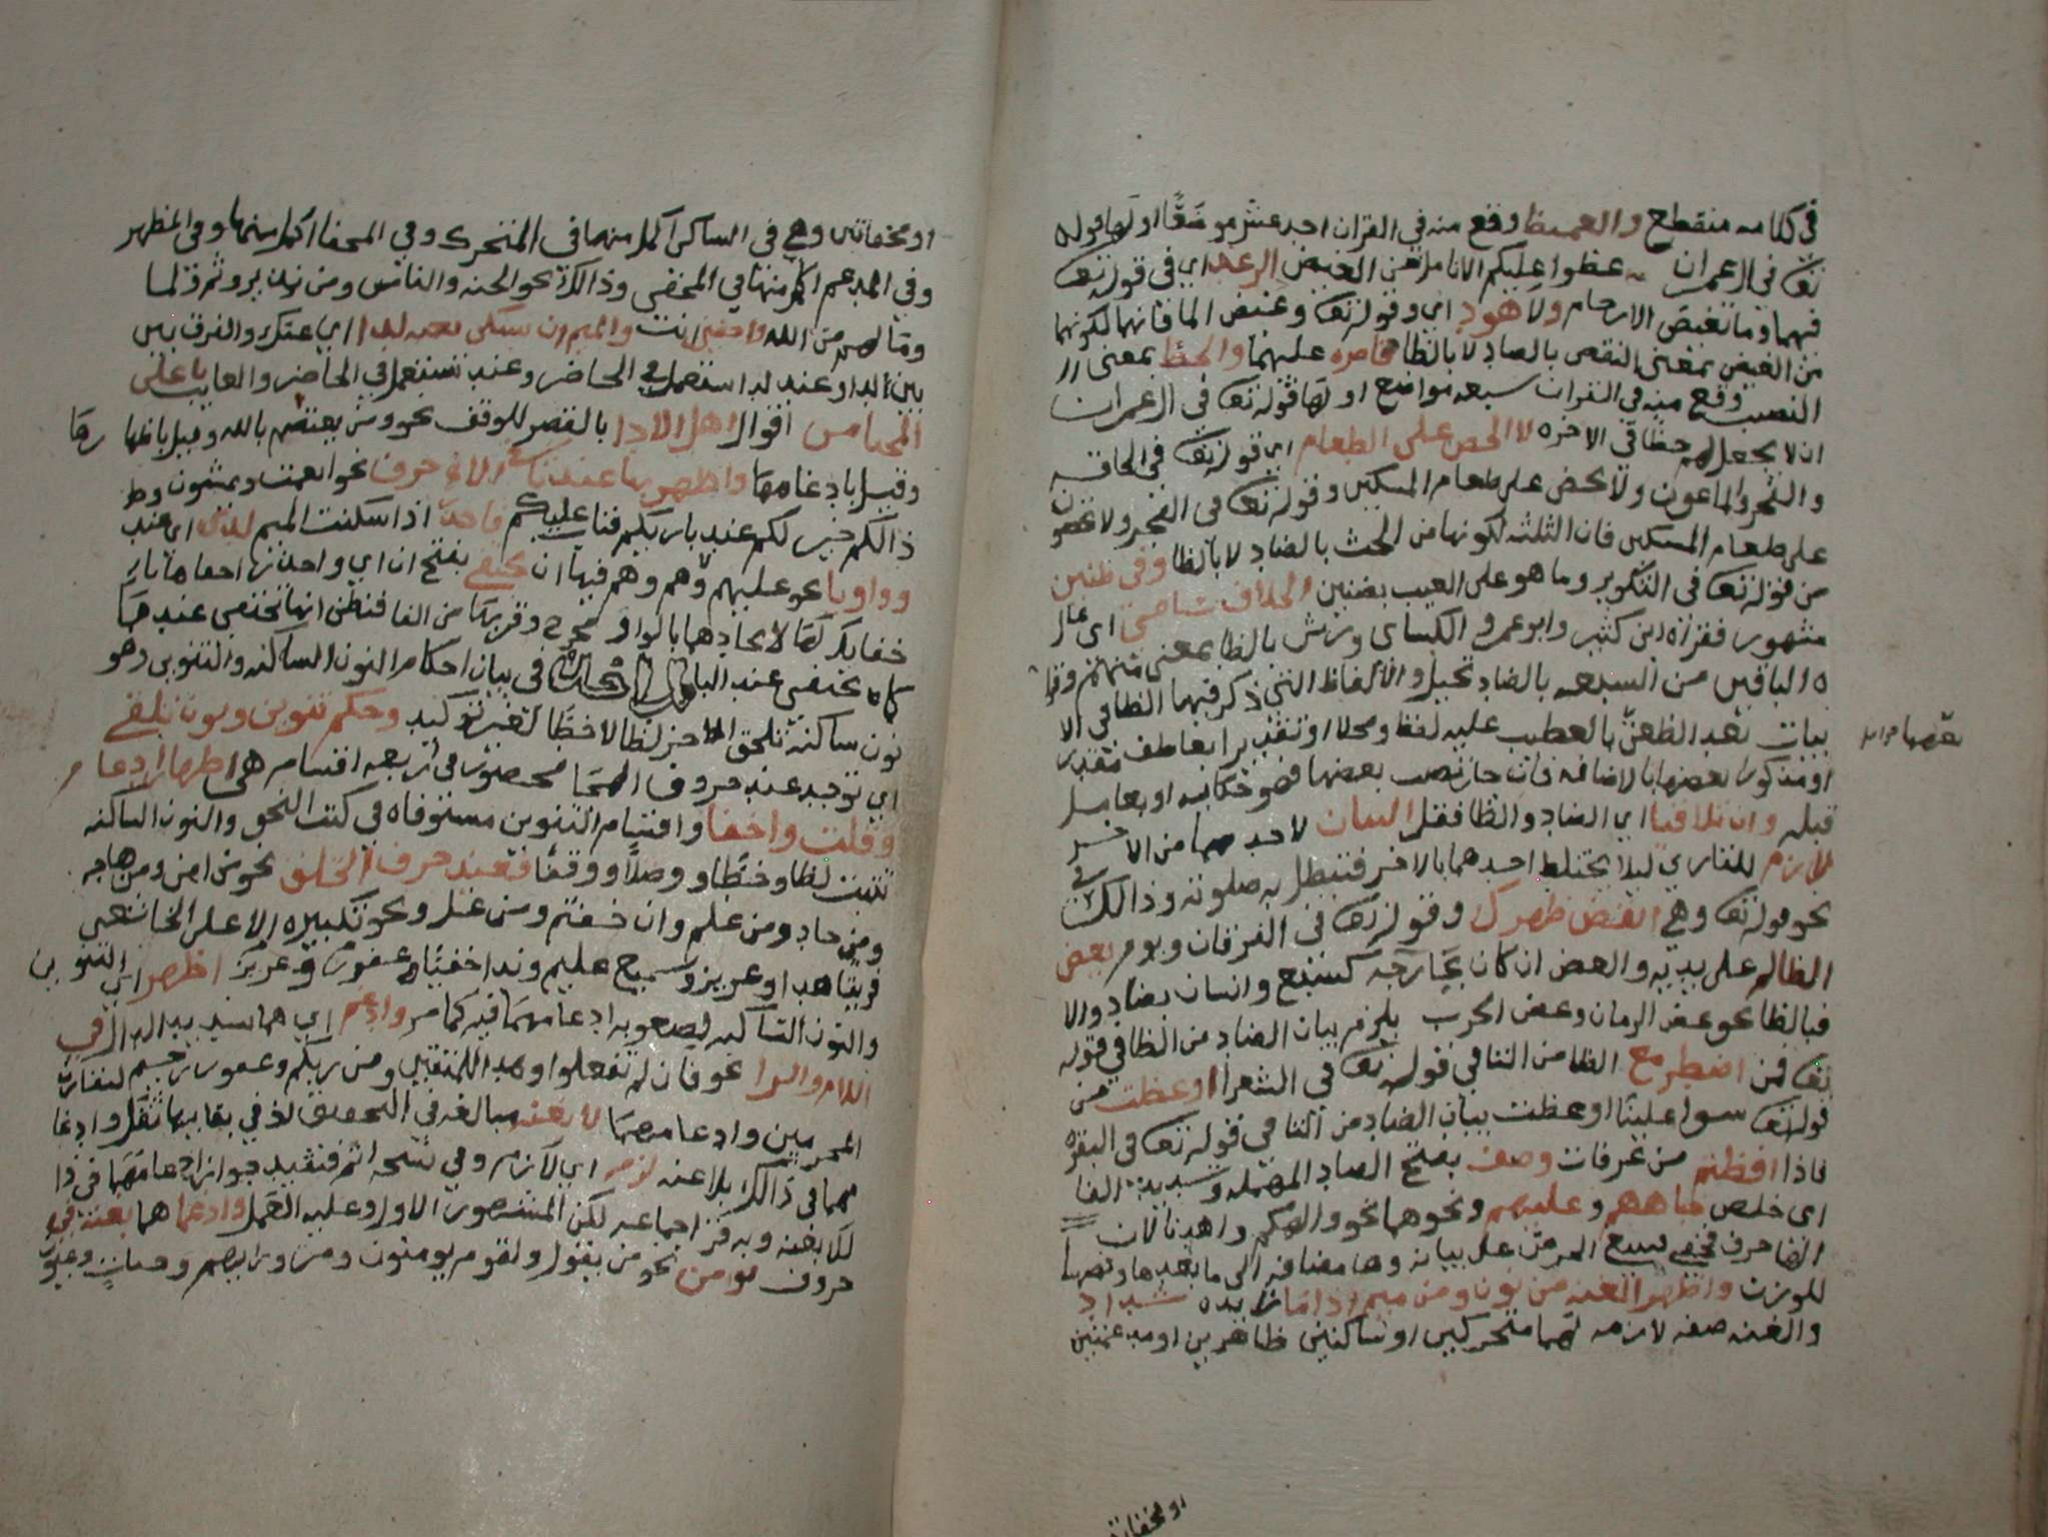 في كلامه منقطع والغيظ وقع منه في القران احد عشر موضعًا اولها قوله
تعه في ال عمران عضوا عليكم الانامل من الغيض الرعد اي في قوله تعه
فيهما وما تغيض الارحام ولا هود اي وقوله تعه وغيض الما فانهما لكونهما
من الغيض بمعنى النقص بالضاد لا بالظا قاصره عليهما والحظ بمعنى
النصيب وقع منه في القران سبعه مواضع اولها قوله تعه في ال عمران
ان لا يجعل لهم حظا في الاخره لا الحض على الطعام اي قوله تعه في الحاقه
والفجر والماعون ولا يحض على طعام المسكين وقوله تعه في الفجر ولا تحضون
على طعام المسكين فان الثلثه لكونها من الحث بالضاد لا بالظا وفي ظنين
من قوله تعه في التكوير وما هو على الغيب بضنين الخلاف سامي اي عال
مشهور فقراه ابن كثير وابو عمرو الكساي ورش بالظا بمعنى متهم وقرا
ه الباقين من السبعه بالضاد بخيل والالفاظ التي ذكر فيها الظا في الا
بيات بعد الظعن بالعطف عليه لفظا ومحلا او تقديرا بعاطف مقدر
او مذكور بعضها بالاضافه فان جاز نصب بعضها فهو حكايه او بعامل
قبله وان تلاقيا اي الضاد والظا فقل البيان لاحدهما من الاخر
لازم للقاري ليلا يختلط احدهما بالاخر فتبطل به صلوته وذالك في
نحو قوله تعه وهي انقض ظهرك وقوله تعه في الفرقان ويوم يعض
الظالم على يديه والعض ان كان بجارحه كسبع وانسان بضاد والا
فبالظا نحو عض الزمان وعض الحرب يلزم بيان الضاد من الظا في قوله
تعه فمن اضطر مع الظا من التا في قوله تعه في الشعرا اوعظت من
قوله تعه سوا علينا اوعظت بيان الضاد من التا في قوله تعه في البقره
فاذا افضتم من عرفات وصف بفتح الصاد المهمله وتشديد الفا
اي خلص جباههم وعليهم ونحوهما نحو والهكم واهدنا لان
الها حرف خفي على بيانه وها مضافه الى ما بعدها
للوزن واظهر الغنه من نون ومن ميم اذا ما شددا
والغنه صفه لازمه لهما متحركين او ساكنين ظاهرين او مدغمين
بعضها
او مخفاتين
او مخفاتين وهي في الساكن اكمل منها في المتحرك وفي المخفا اكمل منها وفي المظهر
وفي المدغم اكمل منها في المخفي وذالك نحو الجنه والناس ومن نذير وثم ولما
وما لهم من الله واخفين انت والميم ان تسكن بغنه لدا اي عند والفرق بين
بين لدا وعند لدا استعمل في الحاضر وعند تستعمل في الحاضر والغايب با على
المختار من اقوال اهل الادا بالقصر للوقف نحو ومن يعتصم بالله وقيل باظهارها
وقيل بادغامها واظهرنها عند باقي الاحرف نحو انعمت وتمشون و
ذالكم خير لكم عند باريكم فتاب عليكم واحذر اذا سكنت الميم لدى اي عند
وواو يا نحو عليهم ولا هم وهم فيها ان تختفي بفتح ان اي واحذر اخفاها
خفا لاتحادها بالواو مخرجا وقربها من الفا فنظن انها تختفي عندهما
كما تختفي عند البا في بيان احكام النون الساكنه والتنوين وهو
نون ساكنه تلحق الاخر لفظا لا خطًا لغير توكيد وحكم تنوين ونون يلفى
اي يوجد عند حروف الهجا محصور في اربعه اقسام هي اظهار ادغام
وقلب واخفا واقسام التنوين مستوفاه في كتب النحو والنون الساكنه
تثبت لفظا وخطًا ووصلًا ووقفًا فعند حرف الحلق نحو من امن ومن هاجر
ومن حاد ومن علم وان خفتم ومن غل ونحو تكبيره الا على الخاشعين
فريقا هدا وعزيز وسميع عليم وندا خفيًا وعفور وعزيز اظهر اي التنوين
والنون الساكنه لصعوبه ادغامهما فيه كما مر وادغم اي هما بتشديد الدال في
اللام والرا نحو فان لم تفعلوا وهدا للمتقين ومن ربكم وغفور رحيم لتقارب
المخرجين وادغامهما لا بغنه مبالغه في التخفيف اذ في بقايها ثقل وادغا
مهما في ذالك بلا غنه لزم اي لازم وفي نسخه اتم فتفيد جواز ادغامهما في ذا
لك بغنه وبه قرا جماعه لكن المشهور الاول وعليه العمل وادغما هما بغنه في
حروف يومن نحو من يقول ولقوم يومنون ومن ورايهم وجنات وعيون